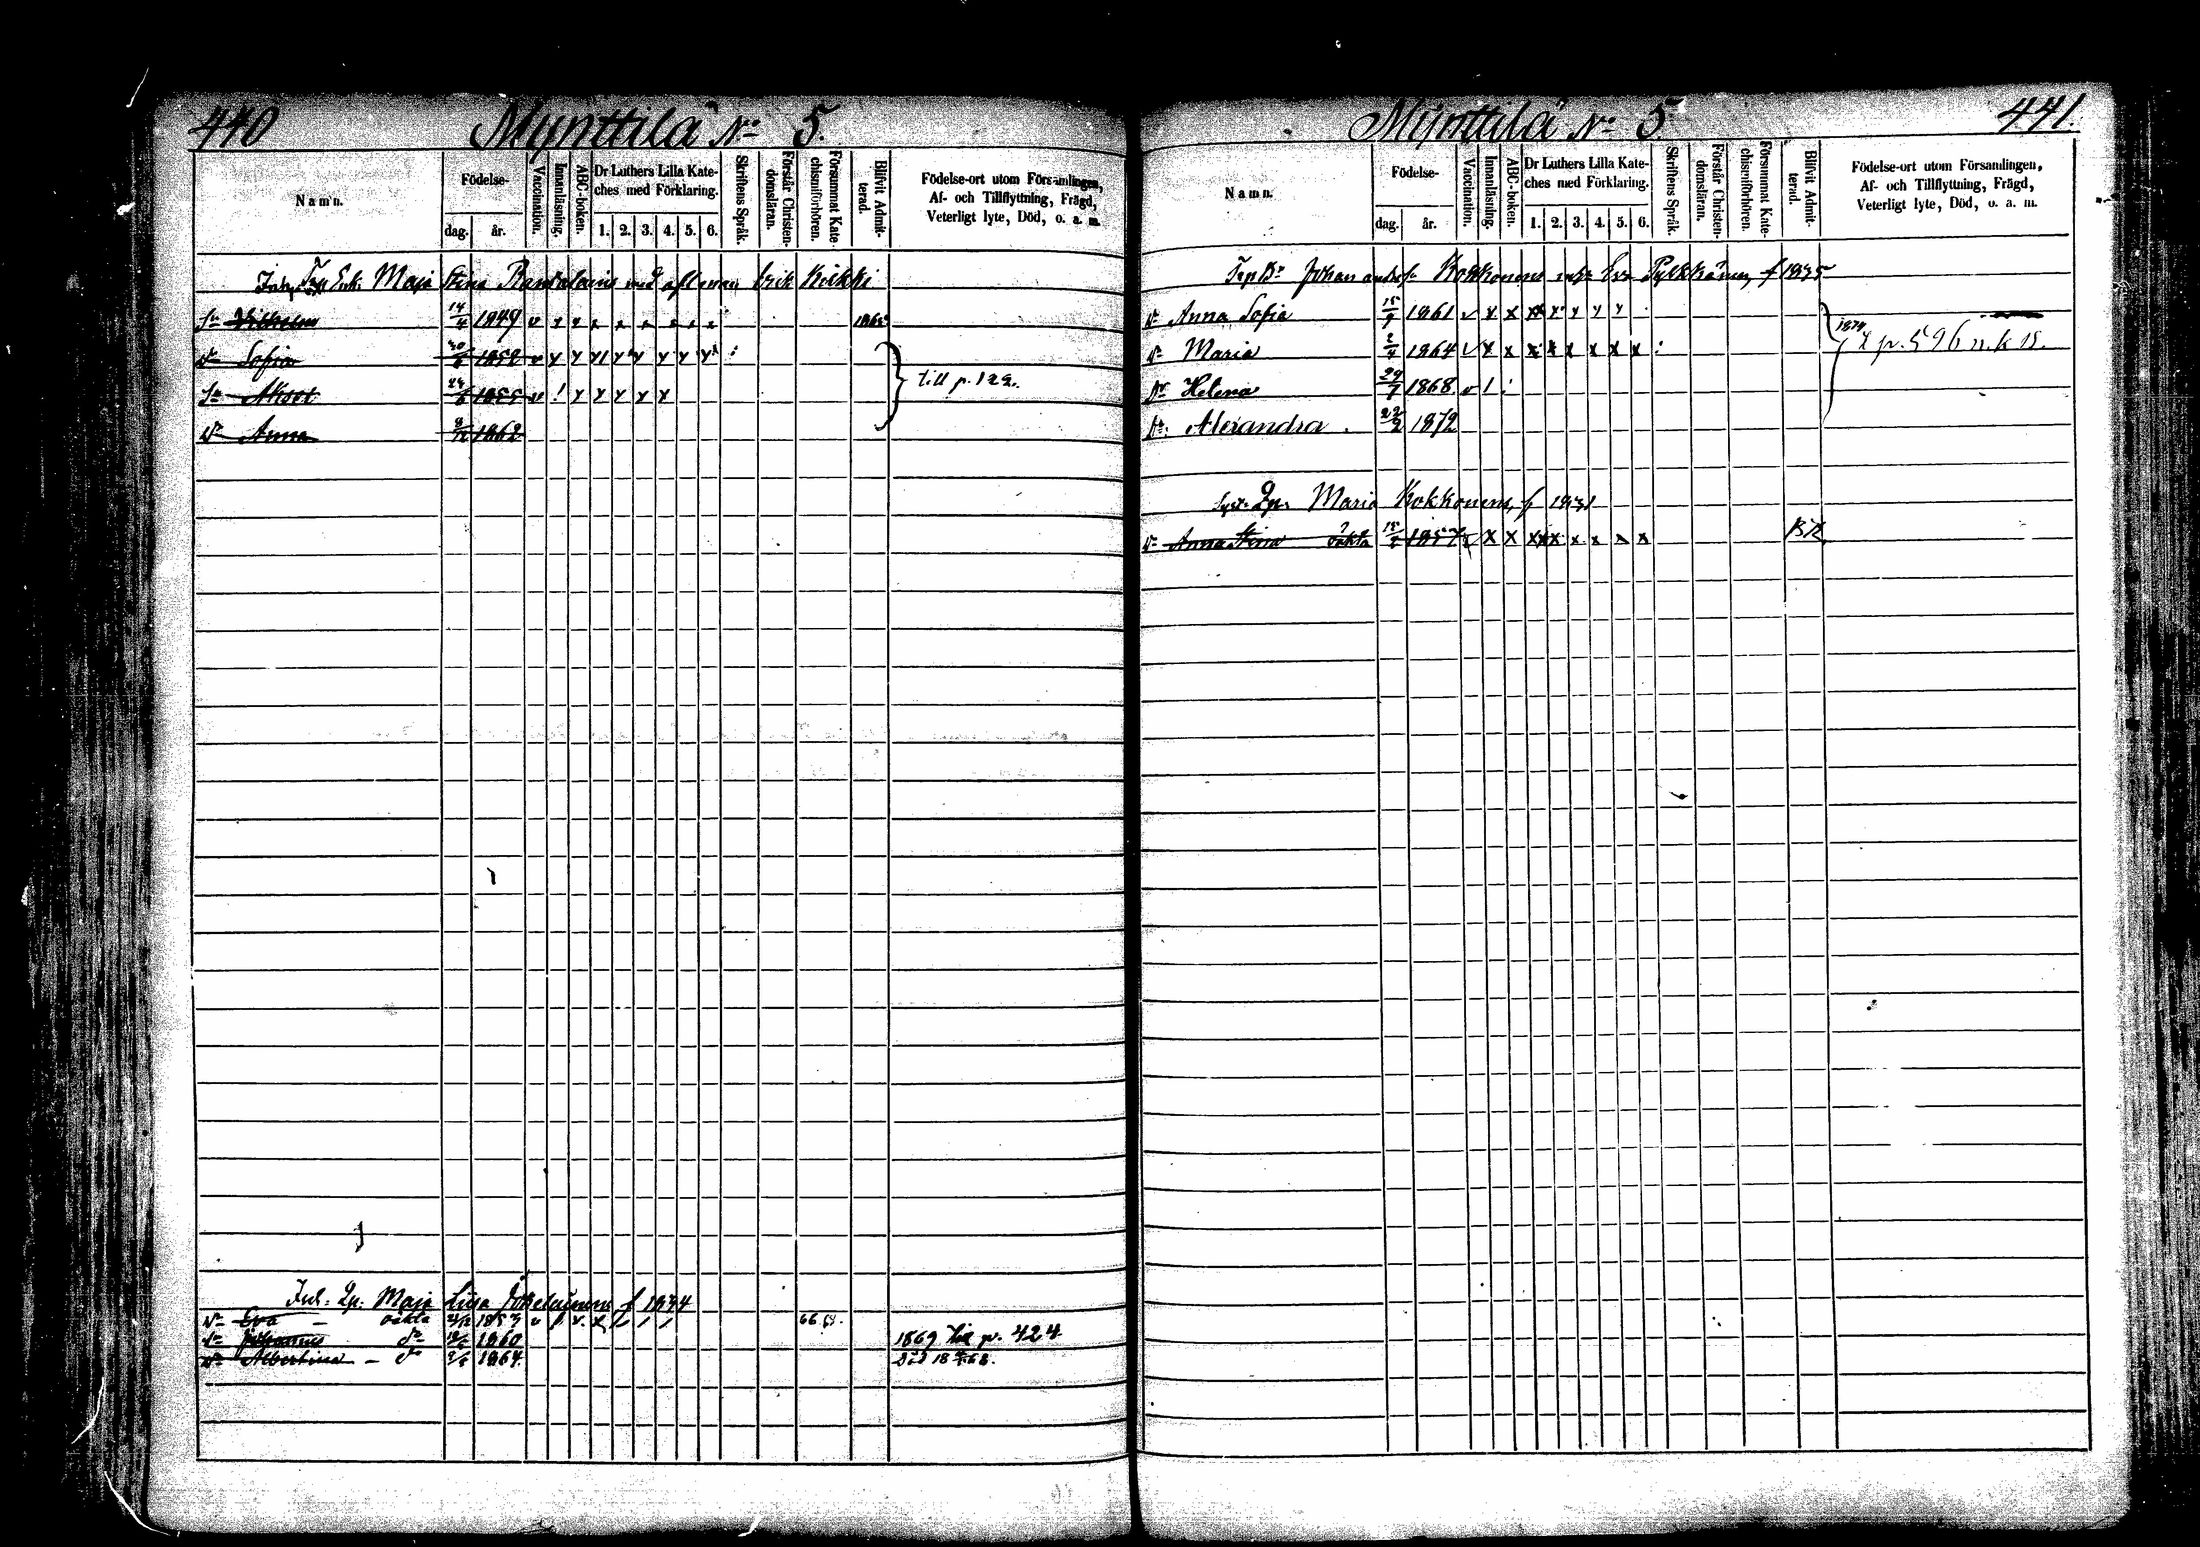 440 Mynttilä No 5.
Namn.
Födelse-
dag. år.
Vaccination.
Innanläsning.
ABC-boken.
Dr Luthers Lilla Kate-
ches med Förklaring.
1. 2. 3. 4. 5. 6.
Skriftens Språk.
Förstår Christen-
domsläran.
Försummat Kate-
chismiförhören.
Blifvit Admit-
terad.
Födelse-ort utom Församlingen,
Af- och Tillflyttning, Frägd,
Veterligt lyte, Död, o. a. m.
Enk. Maja Stina med aflemn Erik Koikki
Sn Vilhelm 14/4 1849 v x x x x x x x x 1865
Dr Sofia 1852 v y y y y y y y y
till p. 122.
Sn Axel 1855 v ! y y y y y
Dr Anna 1862
Maja Lisa f 1834
Dr Eva – oäkta 1853
Sn Johannes do 1860 1869 till p. 424
Dr Albertina – do 1864. Död 18 68.
Mynttilä No 5 441.
Namn.
Födelse-
dag. år.
Vaccination.
Innanläsning.
ABC-boken.
Dr Luthers Lilla Kate-
ches med Förklaring.
1. 2. 3. 4. 5. 6.
Skriftens Språk.
Förstår Christen-
domsläran.
Försummat Kate-
chismiförhören.
Blifvit Admit-
terad.
Födelse-ort utom Församlingen,
Af- och Tillflyttning, Frägd,
Veterligt lyte, Död, o. a. m.
Johan Kokkonens Eva Pylkkänen, f 1835
Dr Anna Sofia 15/9 1861 v x x x x x x x
1874
p. 596 n.k 18.
Dr Maria 2/4 1864 v x x x x x x x x :
Dr Helena 29/7 1868. v ! :
Dr. Alexandra . 22/2 1872
Maria Kokkonens, f 1831
Dr Anna Stina oäkta 1857 x x x x x x x x